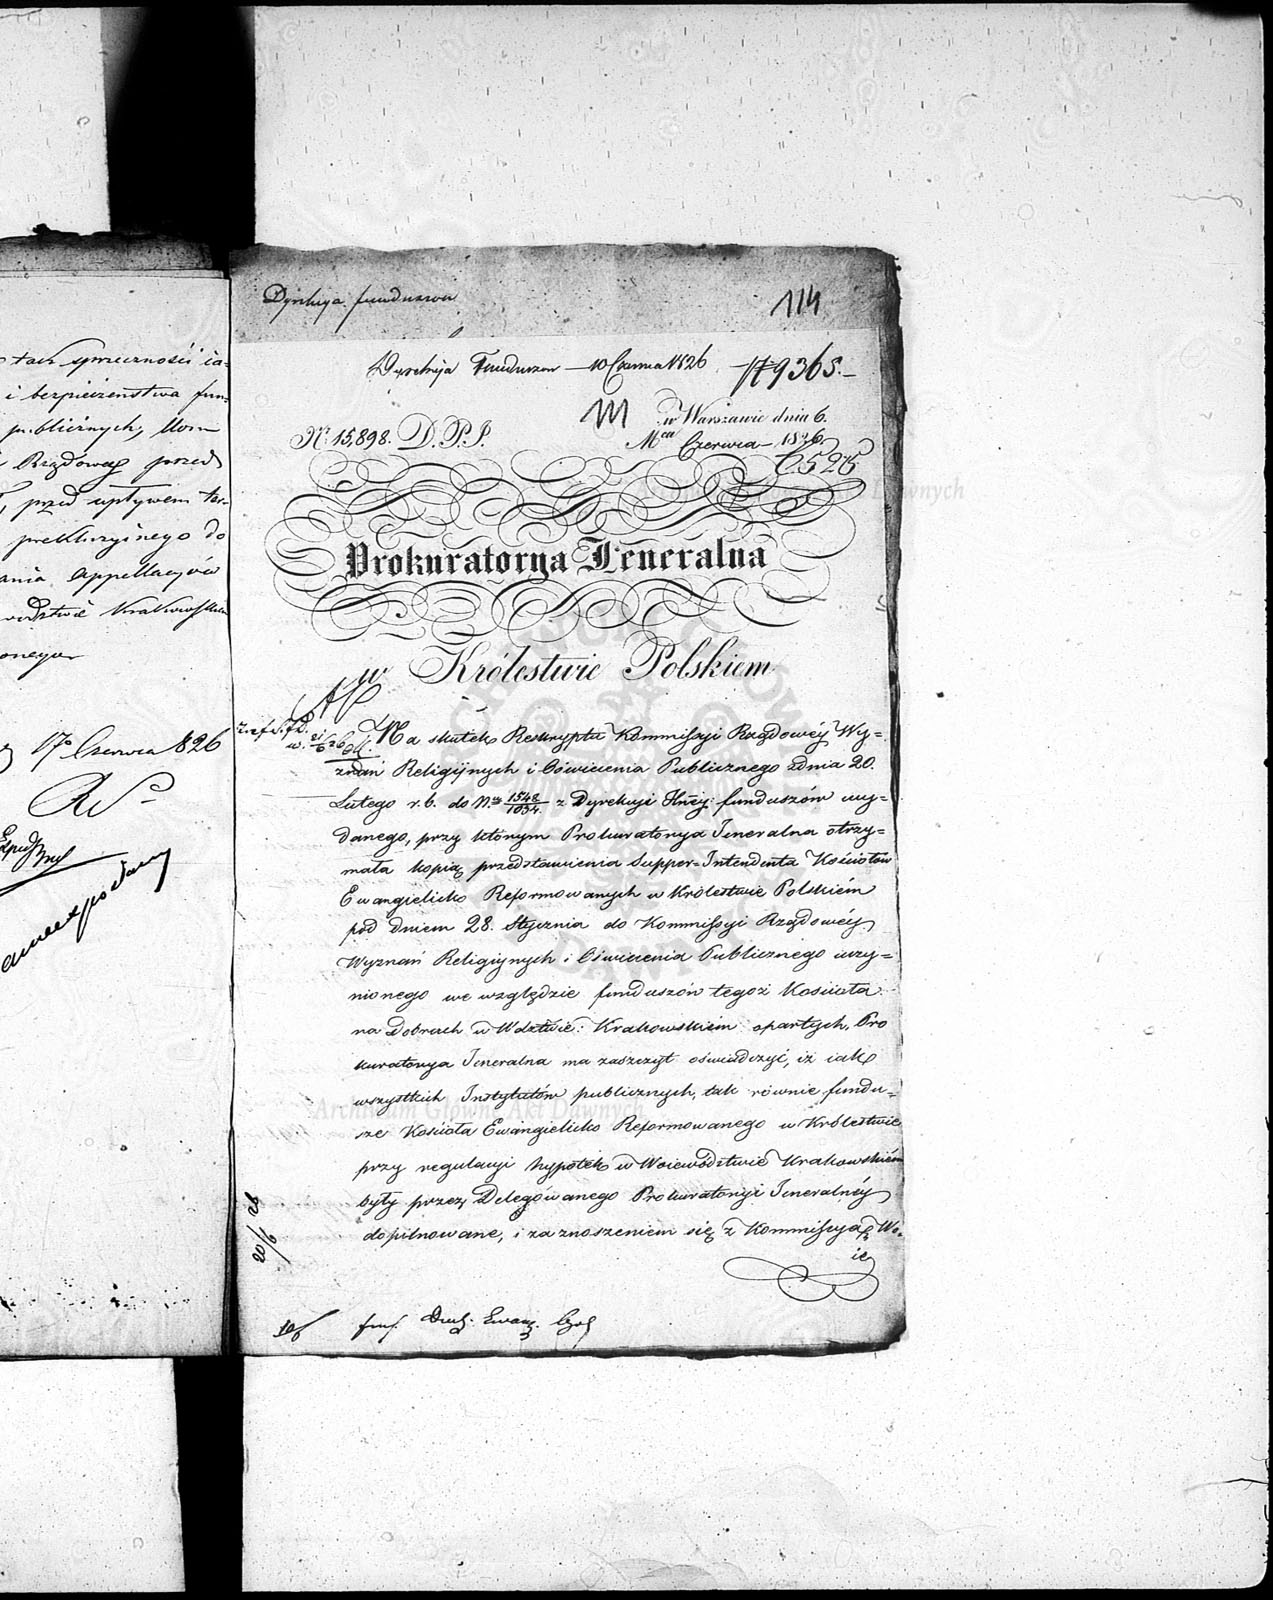 tach sprzeczności ia-
i bezpieczeństwa fun-
publicznych, Kom
Rządowey przed
przed upływem ter-
prekluzyinego do
ania appellacyów
wodztwie Krakowskim
onego
17º Czerwca 826
Dyrekcya funduszow
114
Dyrekcyia Funduszow — 10 Czerwca 1826
№ 9365.—
w Warszawie dnia 6.
№ 15,898. D. P. J.
Mca Czerwca — 1826.
6525
Prokuratorya Jeneralna
w Królestwie Polskiem
Na skutek Reskryptu Kommissyi Rządowéy Wy=
znań Religiynych i Oświecenia Publicznego z dnia 20.
Lutego r. b. do Nru 1548/1034. z Dyrekcyi Jłney funduszów wy=
danego, przy którym Prokuratorya Jeneralna otrzy=
mała kopią przedstawienia Supper=Intendenta Kościołów
Ewangielicko Reformowanych w Królestwie Polskiém
pod dniem 28. Stycznia do Kommissyi Rządowéy
Wyznań Religiynych i Oświecenia Publicznego uczy=
nionego we względzie funduszów tegoż Kościoła
na Dobrach w Wdztwie: Krakowskiém opartych, Pro
kuratorya Jeneralna ma zaszczyt oświadczyć, iż iak
wszystkich Instytutów publicznych, tak równie fundu=
sze Kościoła Ewangielicko Reformowanego w Królestwie
przy regulacyi hypotek w Woiewództwie Krakowskiém
były przez Delegowanego Prokuratoryi Jeneralnéy
dopilnowane, i za znoszeniem się z Kommissyą Wo=
ie
20/6 26
Duch. Ewang.
Archiwum Główne Akt Dawnych